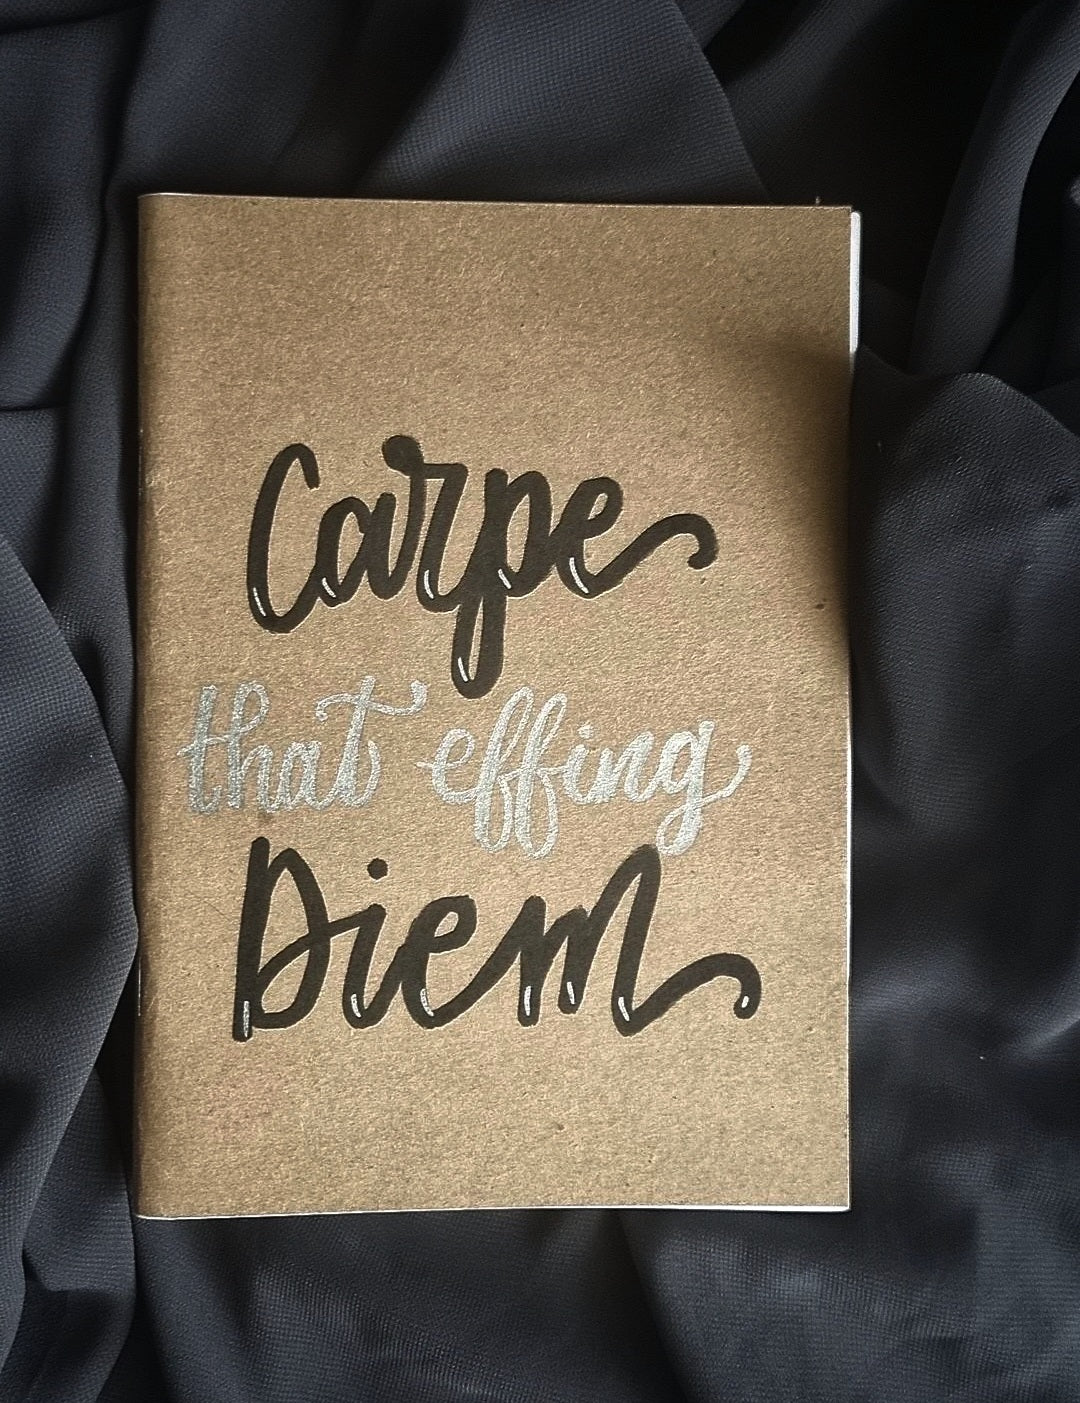 Carpe
that effing
Diem